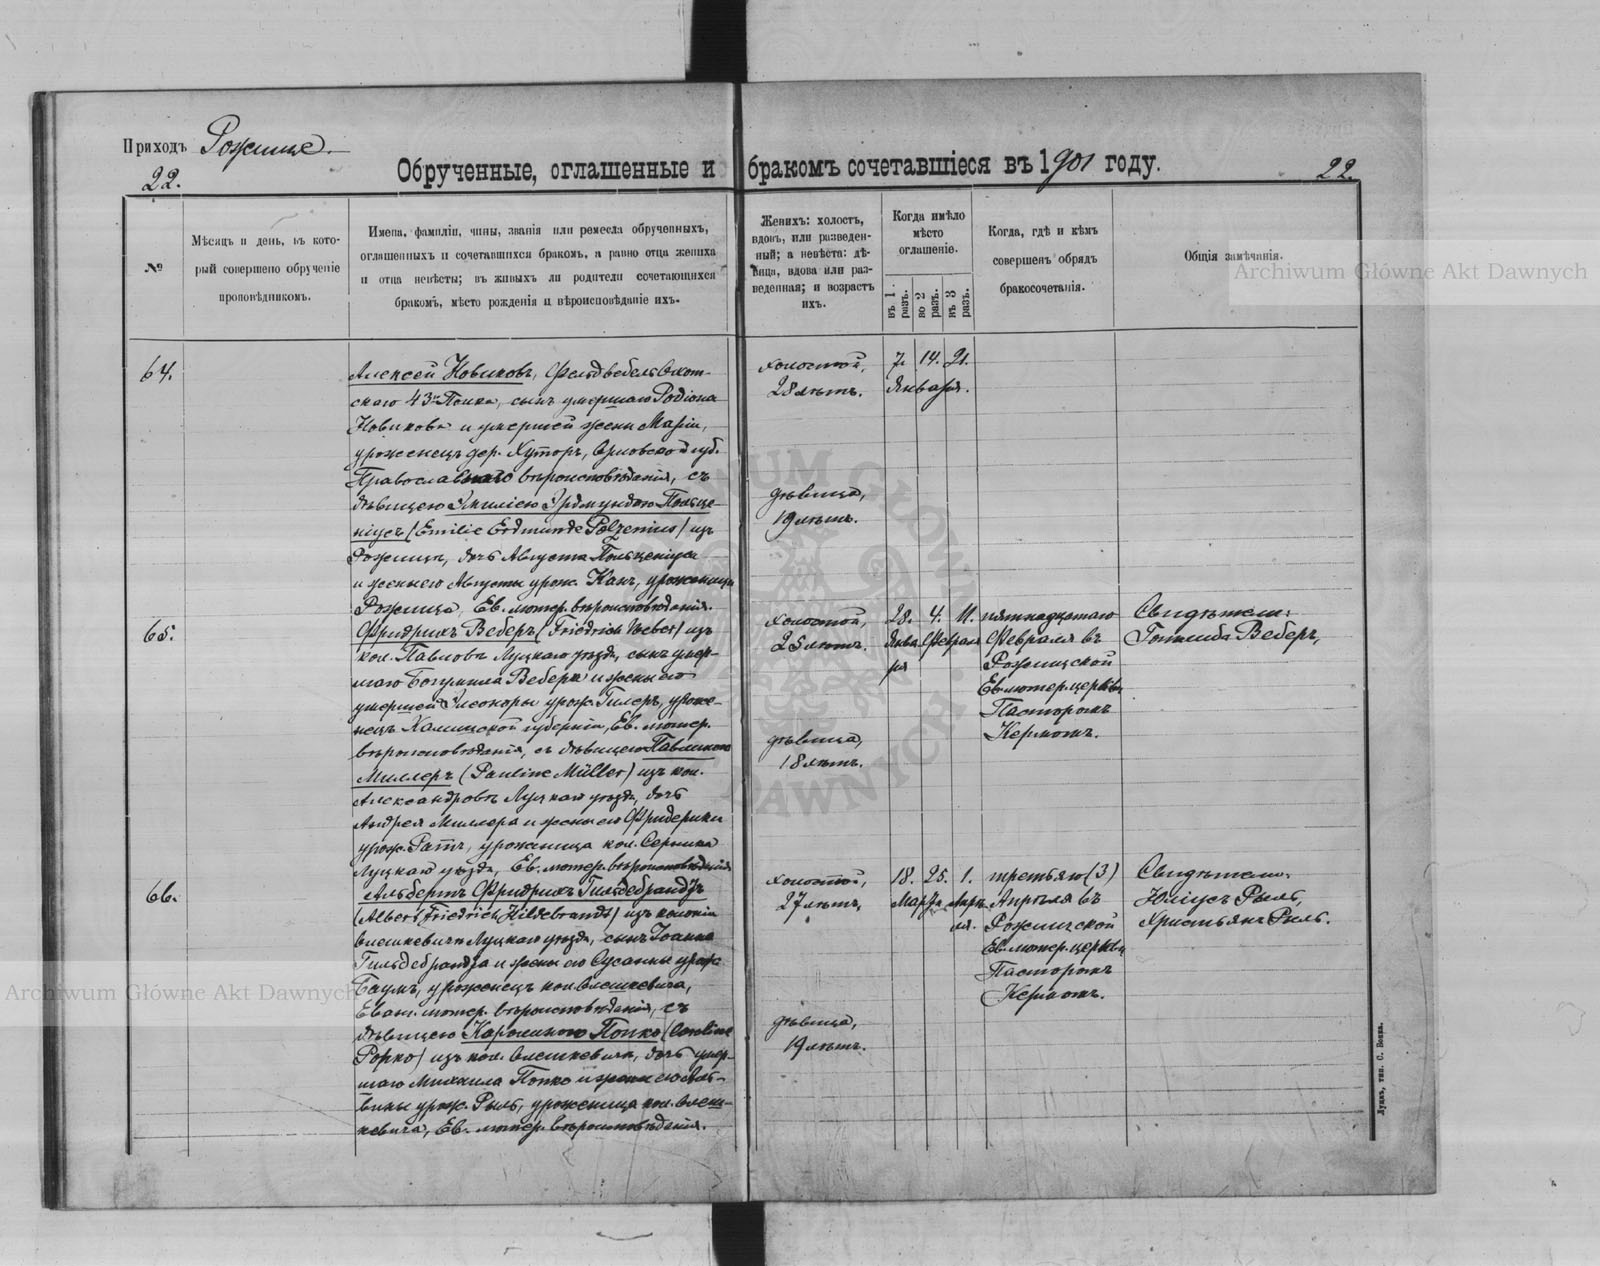 Приходъ Рожище.
22.
Обрученные, оглашенные и бракомъ сочетавшіеся въ 1901 году.
22.
№
Мѣсяцъ и день, въ кото-
рый совершено обрученіе
проповѣдникомъ.
Имена, фамиліи, чины, званія или ремесла обрученныхъ,
оглашенныхъ и сочетавшихся бракомъ, а равно отца жениха
и отца невѣсты; въ живыхъ ли родители сочетающихся
бракомъ, мѣсто рожденія и вѣроисповѣданіе ихъ.
Женихъ: холостъ,
вдовъ, или разведен-
ный; а невѣста: дѣ-
вица, вдова или раз-
веденная; и возрастъ
ихъ.
Когда имѣло
мѣсто
оглашеніе.
въ 1 разъ.
во 2 разъ.
въ 3 разъ.
Когда, гдѣ и кѣмъ
совершенъ обрядъ
бракосочетанія.
Общія замѣчанія.
64.
Алексей Новиковъ, Фельдвебель Охот-
скаго 43го Полка, сынъ умершаго Родіона
Новикова и умершей жены Маріи,
уроженецъ дер. Хуторъ, Орловской губ.
Православнаго вѣроисповѣданія, съ
дѣвицею Эмиліею Эрдмундою Польце-
ніусъ (Emilie Erdmunde Polzenius) изъ
Рожищъ, дочь Августа Польценіуса
и жены его Августы урож. Канъ, уроженица
Рожища, Ев. лютер. вѣроисповѣданія.
холостой,
28 лѣтъ.
дѣвица,
19 лѣтъ.
7. 14. 21.
Января.
65.
Фридрихъ Веберъ (Friedrich Weber) изъ
кол. Павловъ Луцкаго уѣзда, сынъ умер-
шаго Богумила Вебера и жены его
умершей Элеоноры урож. Гилеръ, уроже-
нецъ Калишской губерніи, Ев. лютер.
вѣроисповѣданія, съ дѣвицею Павлиною
Миллеръ (Pauline Müller) изъ кол.
Александровъ Луцкаго уѣзда, дочь
Андрея Миллера и жены его Фридерики
урож. Ратъ, уроженица кол. Серника
Луцкаго уѣзда, Ев. лютер. вѣроисповѣданія
холостой,
25 лѣтъ.
дѣвица,
18 лѣтъ.
28. 4. 11.
Янва Февраля
ря
пятнадцатаго
Февраля въ
Рожищской
Ев. лютер. церкви
Пасторомъ
Кермомъ.
Свидѣтели:
Готлибъ Веберъ,
66.
Альбертъ Фридрихъ Гильдебрандъ
(Albert Friedrich Hildebrandt) изъ колоніи
Олешкевичъ Луцкаго уѣзда, сынъ Іоанна
Гильдебранда и жены его Сусанны урож.
Баумъ, уроженецъ кол. Олешкевича,
Еванг. лютер. вѣроисповѣданія, съ
дѣвицею Каролиною Попко (Caroline
Popko) изъ кол. Олешкевичъ, дочь умер-
шаго Михаила Попко и жены его Аль-
вины урож. Рыль, уроженица кол. Олеш-
кевича, Ев. лютер. вѣроисповѣданія.
холостой,
27 лѣтъ,
дѣвица,
19 лѣтъ.
18. 25. 1.
Марта Апрѣ-
ля.
третьяго (3)
Апрѣля въ
Рожищской
Ев. лютер. церкви
Пасторомъ
Кермомъ.
Свидѣтели:
Юліусъ Рыль,
Христьянъ Рыль.
Луцкъ, тип. С. Бокка.
Archiwum Główne Akt Dawnych
Archiwum Główne Akt Dawnych